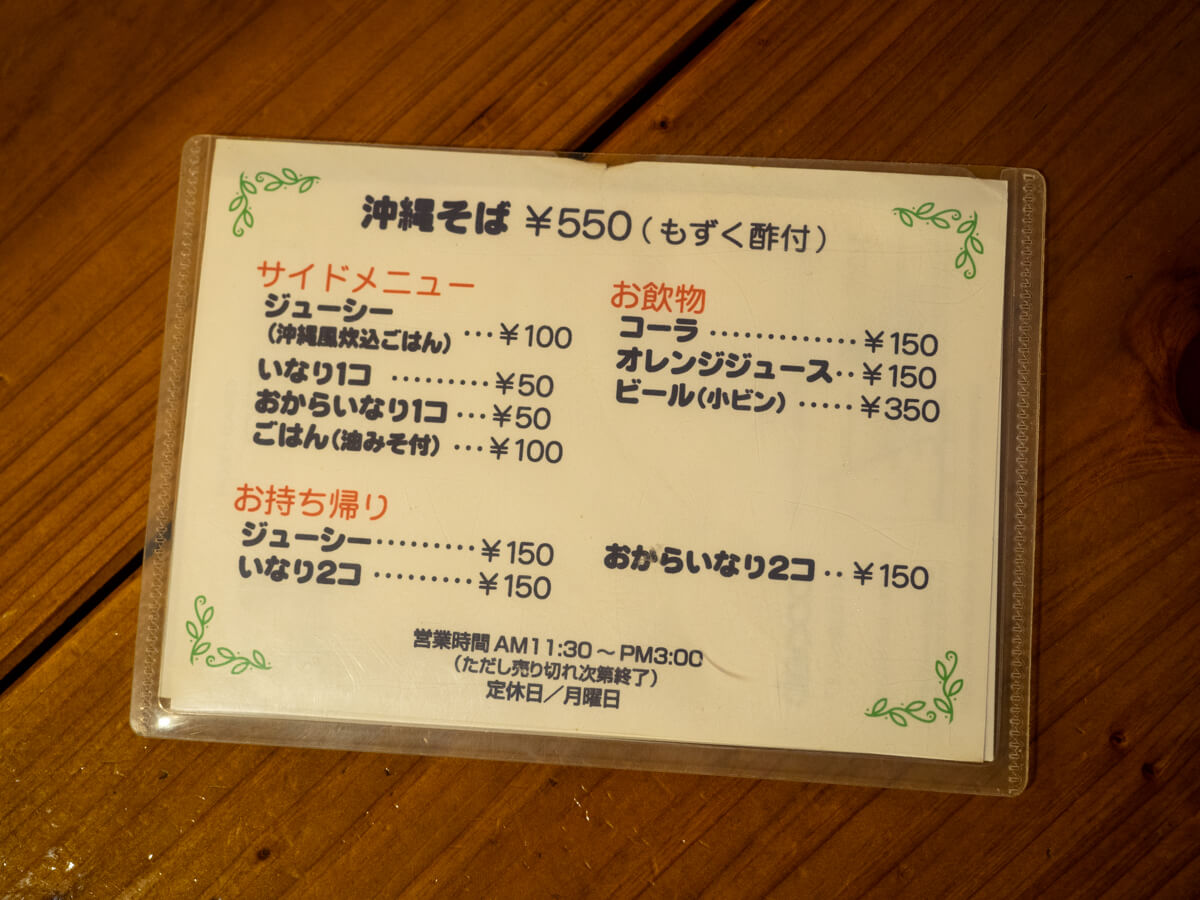 沖縄そば ¥550(もずく酢付)
サイドメニュー
ジューシー
(沖縄風炊込ごはん) …¥100
いなり1コ ………¥50
おからいなり1コ …¥50
ごはん(油みそ付) …¥100
お飲物
コーラ ……………¥150
オレンジジュース‥¥150
ビール(小ビン) ……¥350
お持ち帰り
ジューシー………¥150
いなり2コ ………¥150
おからいなり2コ ‥¥150
営業時間 AM11:30～PM3:00
(ただし売り切れ次第終了)
定休日/月曜日